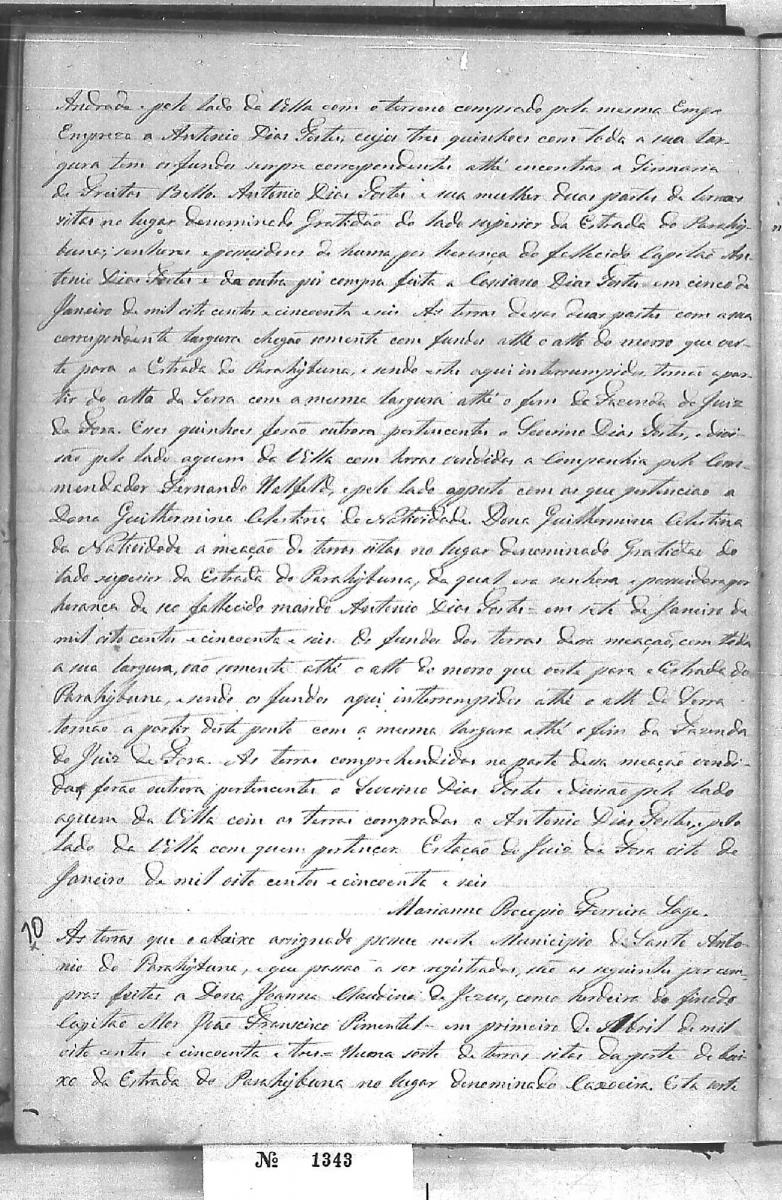 Andrade e pelo lado da Villa com o terreno comprado pela mesma Emp
Empreza a Antonio Dias Tostes, cujos tres quinhoes com toda a sua lar-
gura tem os fundos sempre correspondentes athé encontrar a Sismaria
de Freitas Bello. Antonio Dias Tostes e sua mulher duas partes de terras
sitas no lugar denominado Gratidão do lado superior da Estrada do Parahÿ-
buna; senhores e possuidores de huma por herança do fallecido Capitão An-
tonio Dias Tostes e da outra por compra feita a Cassiano Dias Tostes em cinco de
Janeiro de mil oito centos e cincoenta e seis. As terras dessas duas partes com a sua
correspondente largura chegão somente com fundos athé o alto do morro que ver-
te para a Estrada do Parahÿbuna, e sendo estes aqui interrumpidos, tornão a par-
tir do alto da Serra com a mesma largura athé o fim da Fazenda do Juiz
de Fora. Esses quinhoes forão outrora pertencentes a Severino Dias Tostes, e divi-
são pelo lado aquem da Villa com terras vendidas a Companhia pelo Com-
mendador Fernando Halfeld, e pelo lado opposto com as que pertencião a
Dona Guilhermina Celestina da Natividade. Dona Guilhermina Celestina
da Natividade a meação de terras sitas no lugar denominado Gratidão do
lado superior da Estrada do Parahÿbuna, da qual era senhora e possuidora por
herança de seo fallecido marido Antonio Dias Tostes = em sete de Janeiro de
mil oito centos e cincoenta e seis. Os fundos das terras dessa meação, com toda
a sua largura, vão somente athé o alto do morro que verte para a Estrada do
Parahÿbuna, e sendo os fundos aqui interrompidos athé o alto da Serra
tornão a partir deste ponto com a mesma largura athé o fim da Fazenda
do Juiz de Fora. As terras comprehendidas na parte dessa meação vendi-
da forão outrora pertencentes a Severino Dias Tostes e divisão pelo lado
aquem da Villa com as terras compradas a Antonio Dias Tostes, e pelo
lado da Villa com quem pertencer. Estação do Juiz de Fora oito de
Janeiro de mil oito centos e cincoenta e seis
Marianno Procopio Ferreira Lage.
10
As terras que o abaixo assignado possue neste Municipio de Santo Anto-
nio do Parahÿbuna, e que passão a ser registradas, são as seguintes por com-
pras feitas a Dona Joanna Claudina de Jezus, como herdeira do finado
Capitão Mor José Francisco Pimentel = em primeiro de Abril de mil
oito centos e cincoenta e tres = Huma sorte de terras sitas da parte de bai-
xo da Estrada do Parahÿbuna no lugar denominado Caxoeira. Esta sorte
Nº 1343